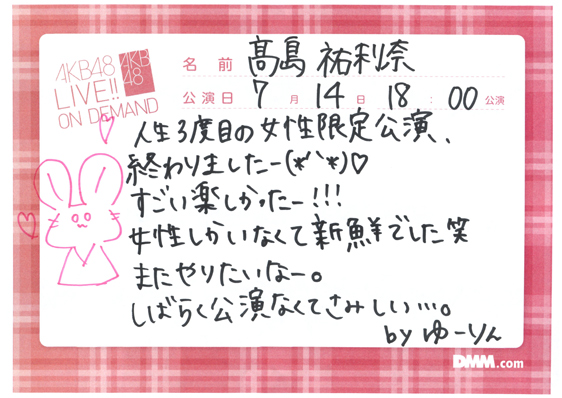 AKB48
LIVE!!
ON DEMAND
AKB
48
名前 髙島 祐利奈
公演日 7月 14日 18:00公演
人生3度目の女性限定公演、
終わりましたー(*^^*)♡
すごい楽しかったー!!!
女性しかいなくて新鮮でした笑
またやりたいなー。
しばらく公演なくてさみしい…。
by ゆーりん
DMM.com